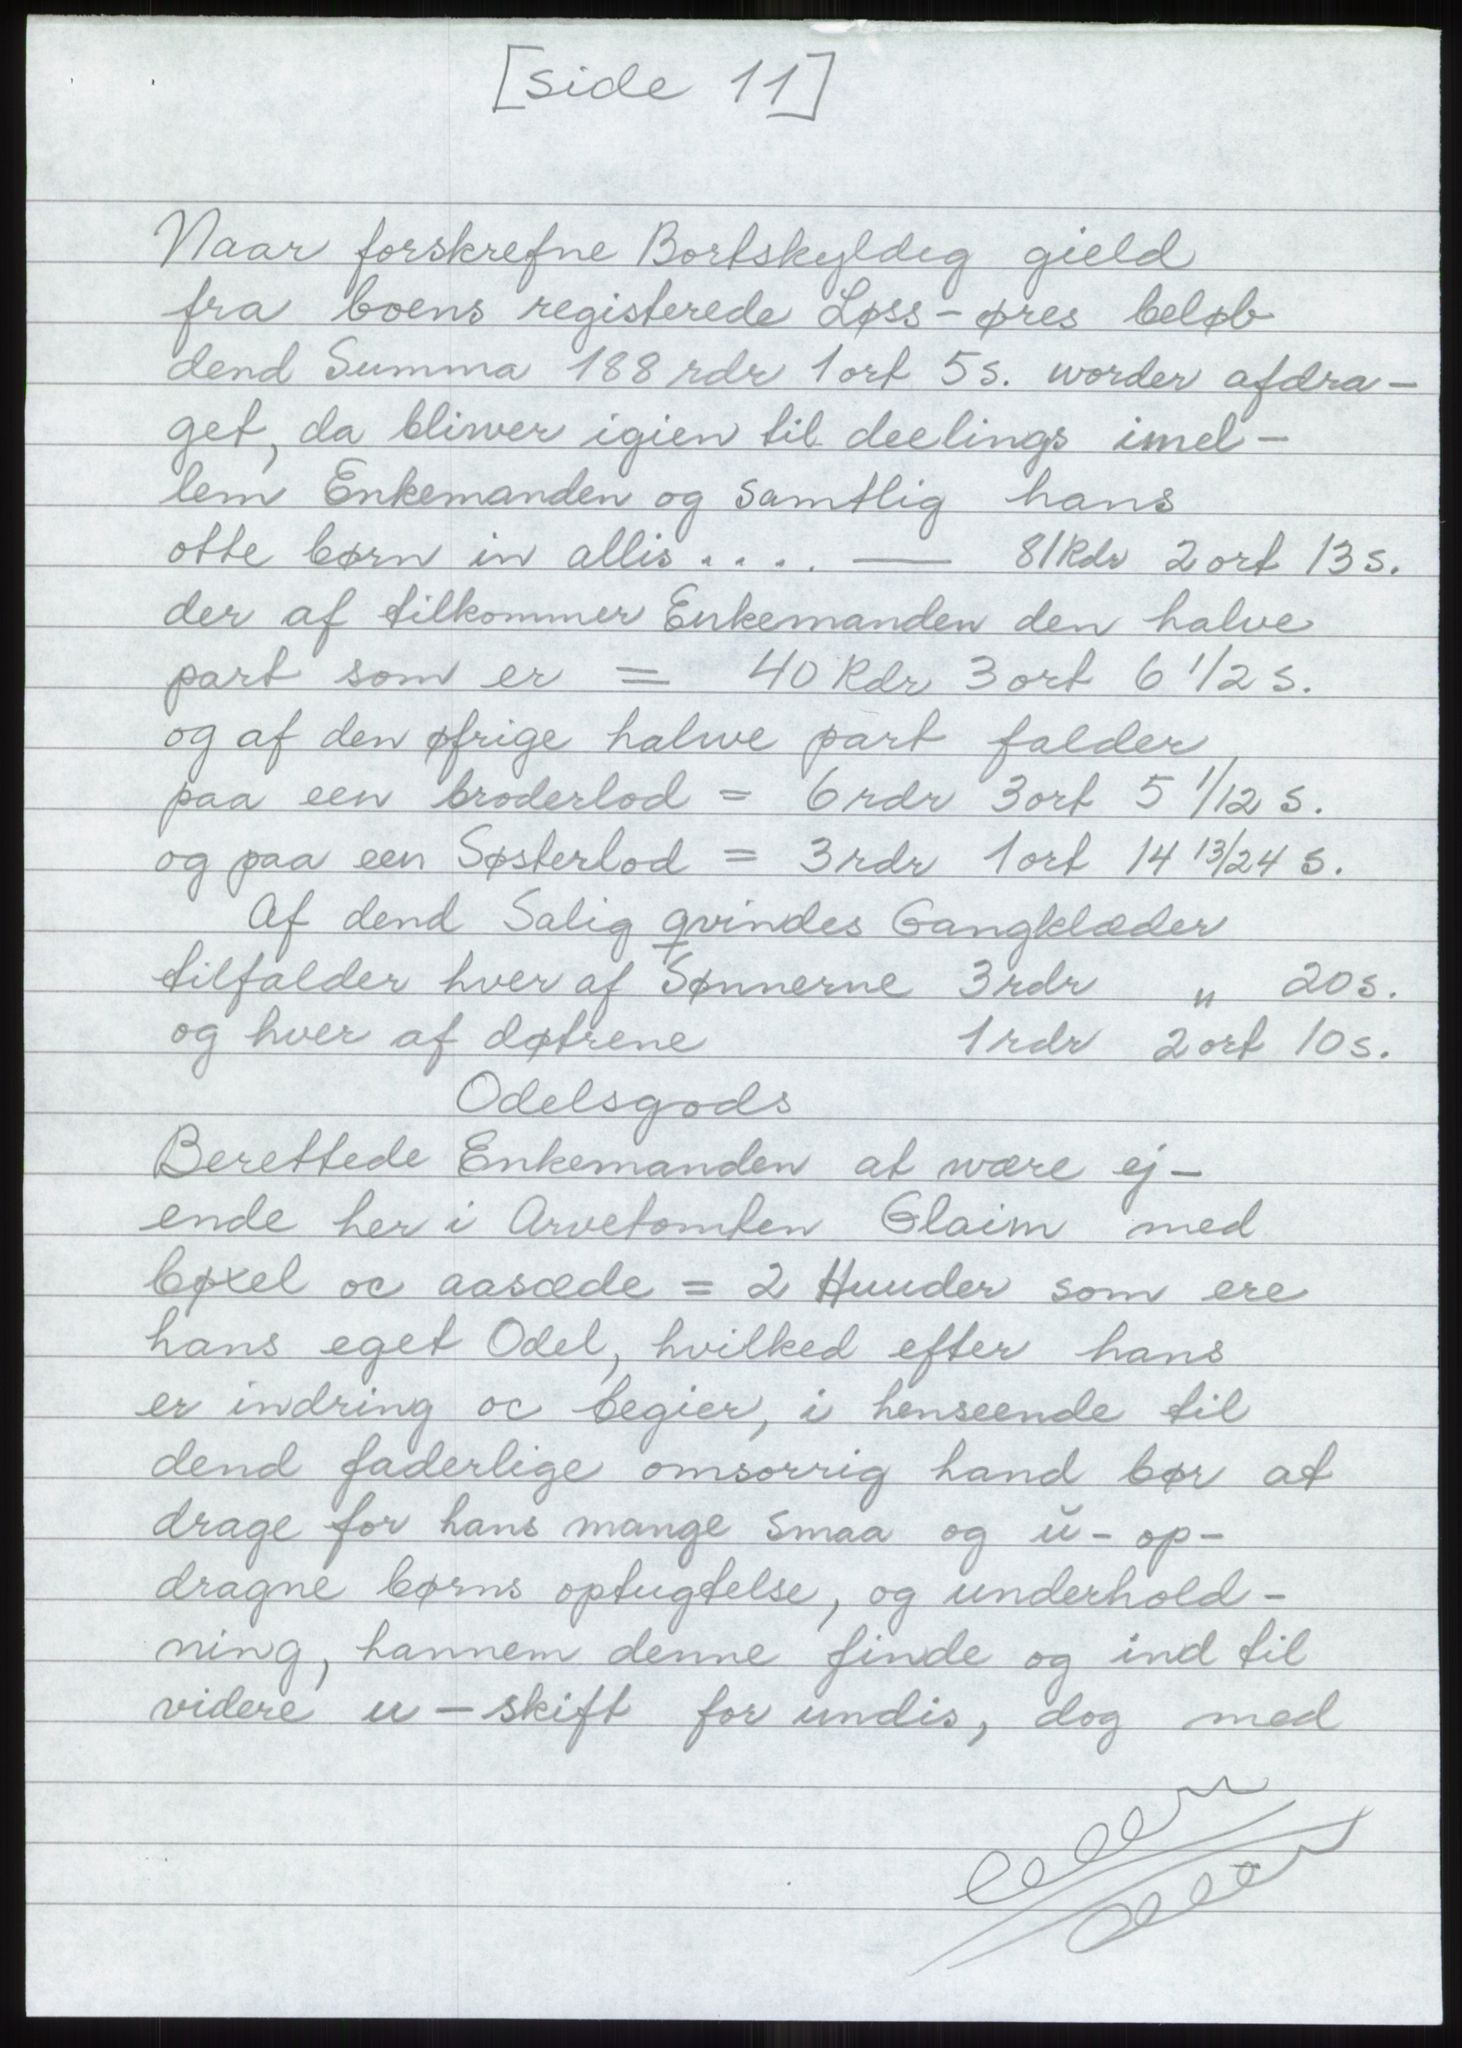 [side 11]
Naar forskrefne Bortskyldig gield
fra boens registerede Løss-øres beløb
dend Summa 188 rdr 1 ort 5 s. worder afdra-
get, da bliwer igien til deelings imel-
lem Enkemanden og samtlig hans
otte børn in allis.... — 81 Rdr 2 ort 13 s.
der af tilkommer Enkemanden den halve
part som er = 40 Rdr 3 ort 6 1/2 s.
og af den øfrige halwe part falder
paa een broderlod = 6 rdr 3 ort 5 1/12 s.
og paa een Søsterlod = 3 rdr 1 ort 14 13/24 s.
Af dend Salig qvindes Gangklæder
tilfalder hver af Sønnerne 3 rdr „ 20 s.
og hver af døtrene 1 rdr 2 ort 10 s.
Odelsgods
Berettede Enkemanden at wære ej-
ende her i Arvetomten Glaim med
bøxel oc aasæde = 2 Huuder som ere
hans eget Odel, hvilked efter hans
er indring oc begier, i henseende til
dend faderlige omsorrig hand bør at
drage for hans mange smaa og ŭ-op-
dragne børns optugtelse, og underhold-
ning, hannem denne finde og ind til
videre u-skift for undis, dog med